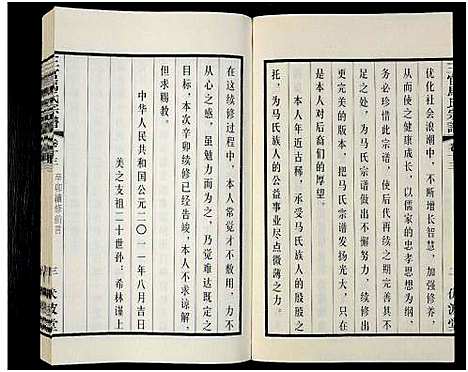 优化社会浪潮中，不断增长智慧，加强修养，
从而使之健康成长，以儒家的忠孝思想为纲，
务必珍惜此宗谱，使后代再续修出
足之处，为马氏宗谱做出不懈努力，续修出
更完美的版本，把马氏宗谱发扬光大，只要
是本人对后裔们的厚望。
本人年近古稀，承受马氏族人的殷殷之
托，为马氏族人的公益事业尽点微薄之力。
在这续修过程中，本人常觉才不达意，有力不
从心之感，虽勉力而为之，乃觉难达既定之
目标，本次辛卯续修已经告竣，本人不求谅解，
但求赐教。
中华人民共和国公元二〇一一年八月吉日
美之支祖二十世孙：希林谨上
辛卯续修前言
三
伏波堂